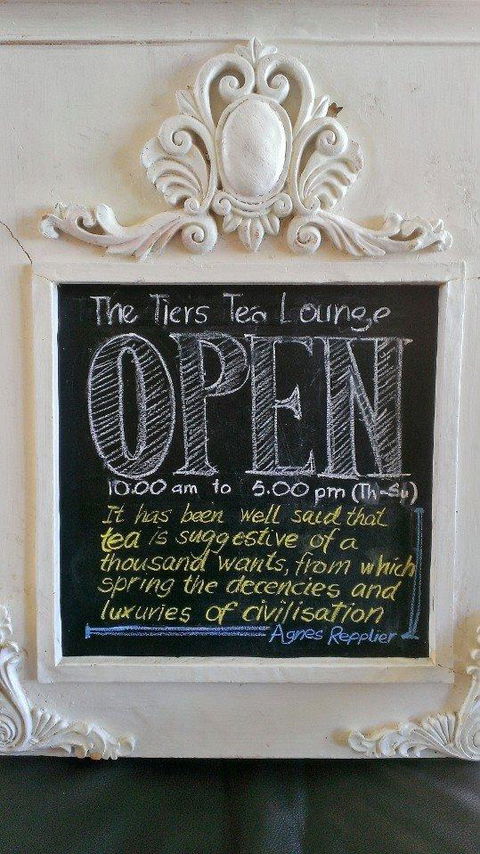 The Tiers Tea Lounge
OPEN
10.00 am to 5.00 pm (Th-Su)
It has been well said that
tea is suggestive of a
thousand wants, from which
spring the decencies and
luxuries of civilisation
Agnes Repplier